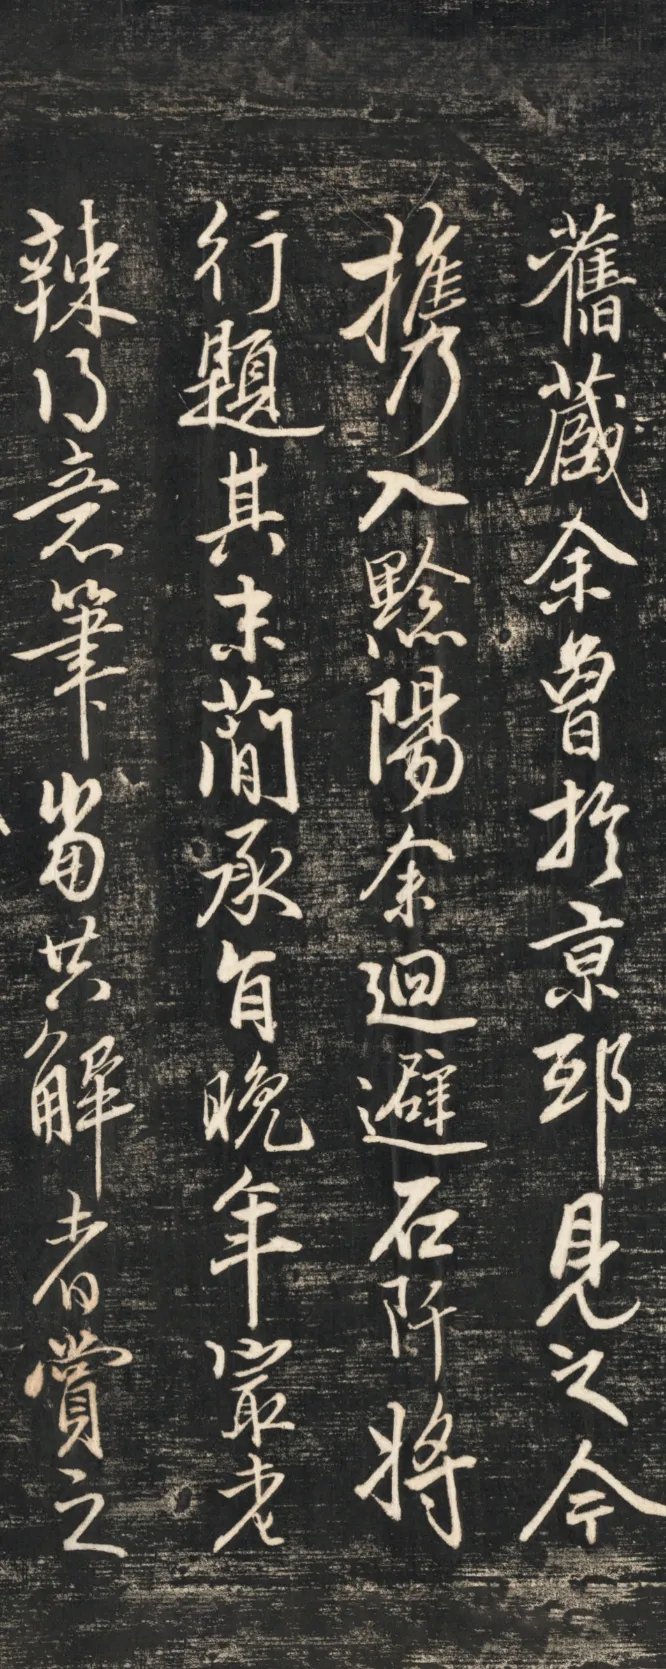 舊藏余曾於京邸見之今
攜入黔陽余迴避石阡將
行題其末蕑承旨晚年最老
辣得意筆當共解者賞之